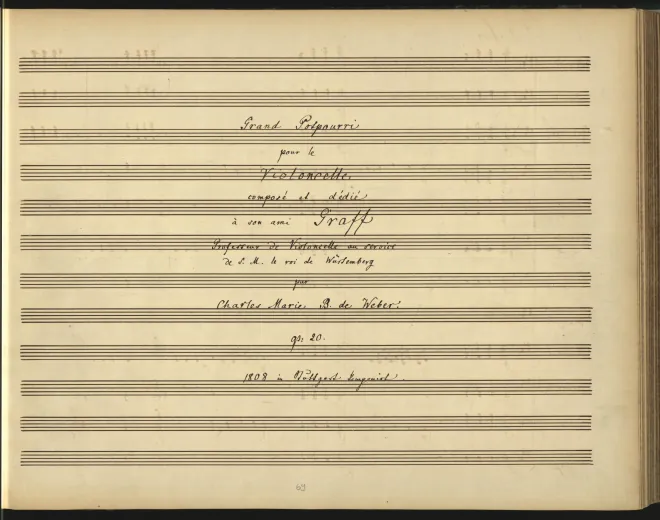 Grand Potpourri
pour le
Violoncelle,
composé et dédié
à son ami Graff
Professeur de Violoncelle au service
de S. M. le roi de Würtemberg
par
Charles Marie B. de Weber.
op: 20.
1808 in Stuttgart komponirt.